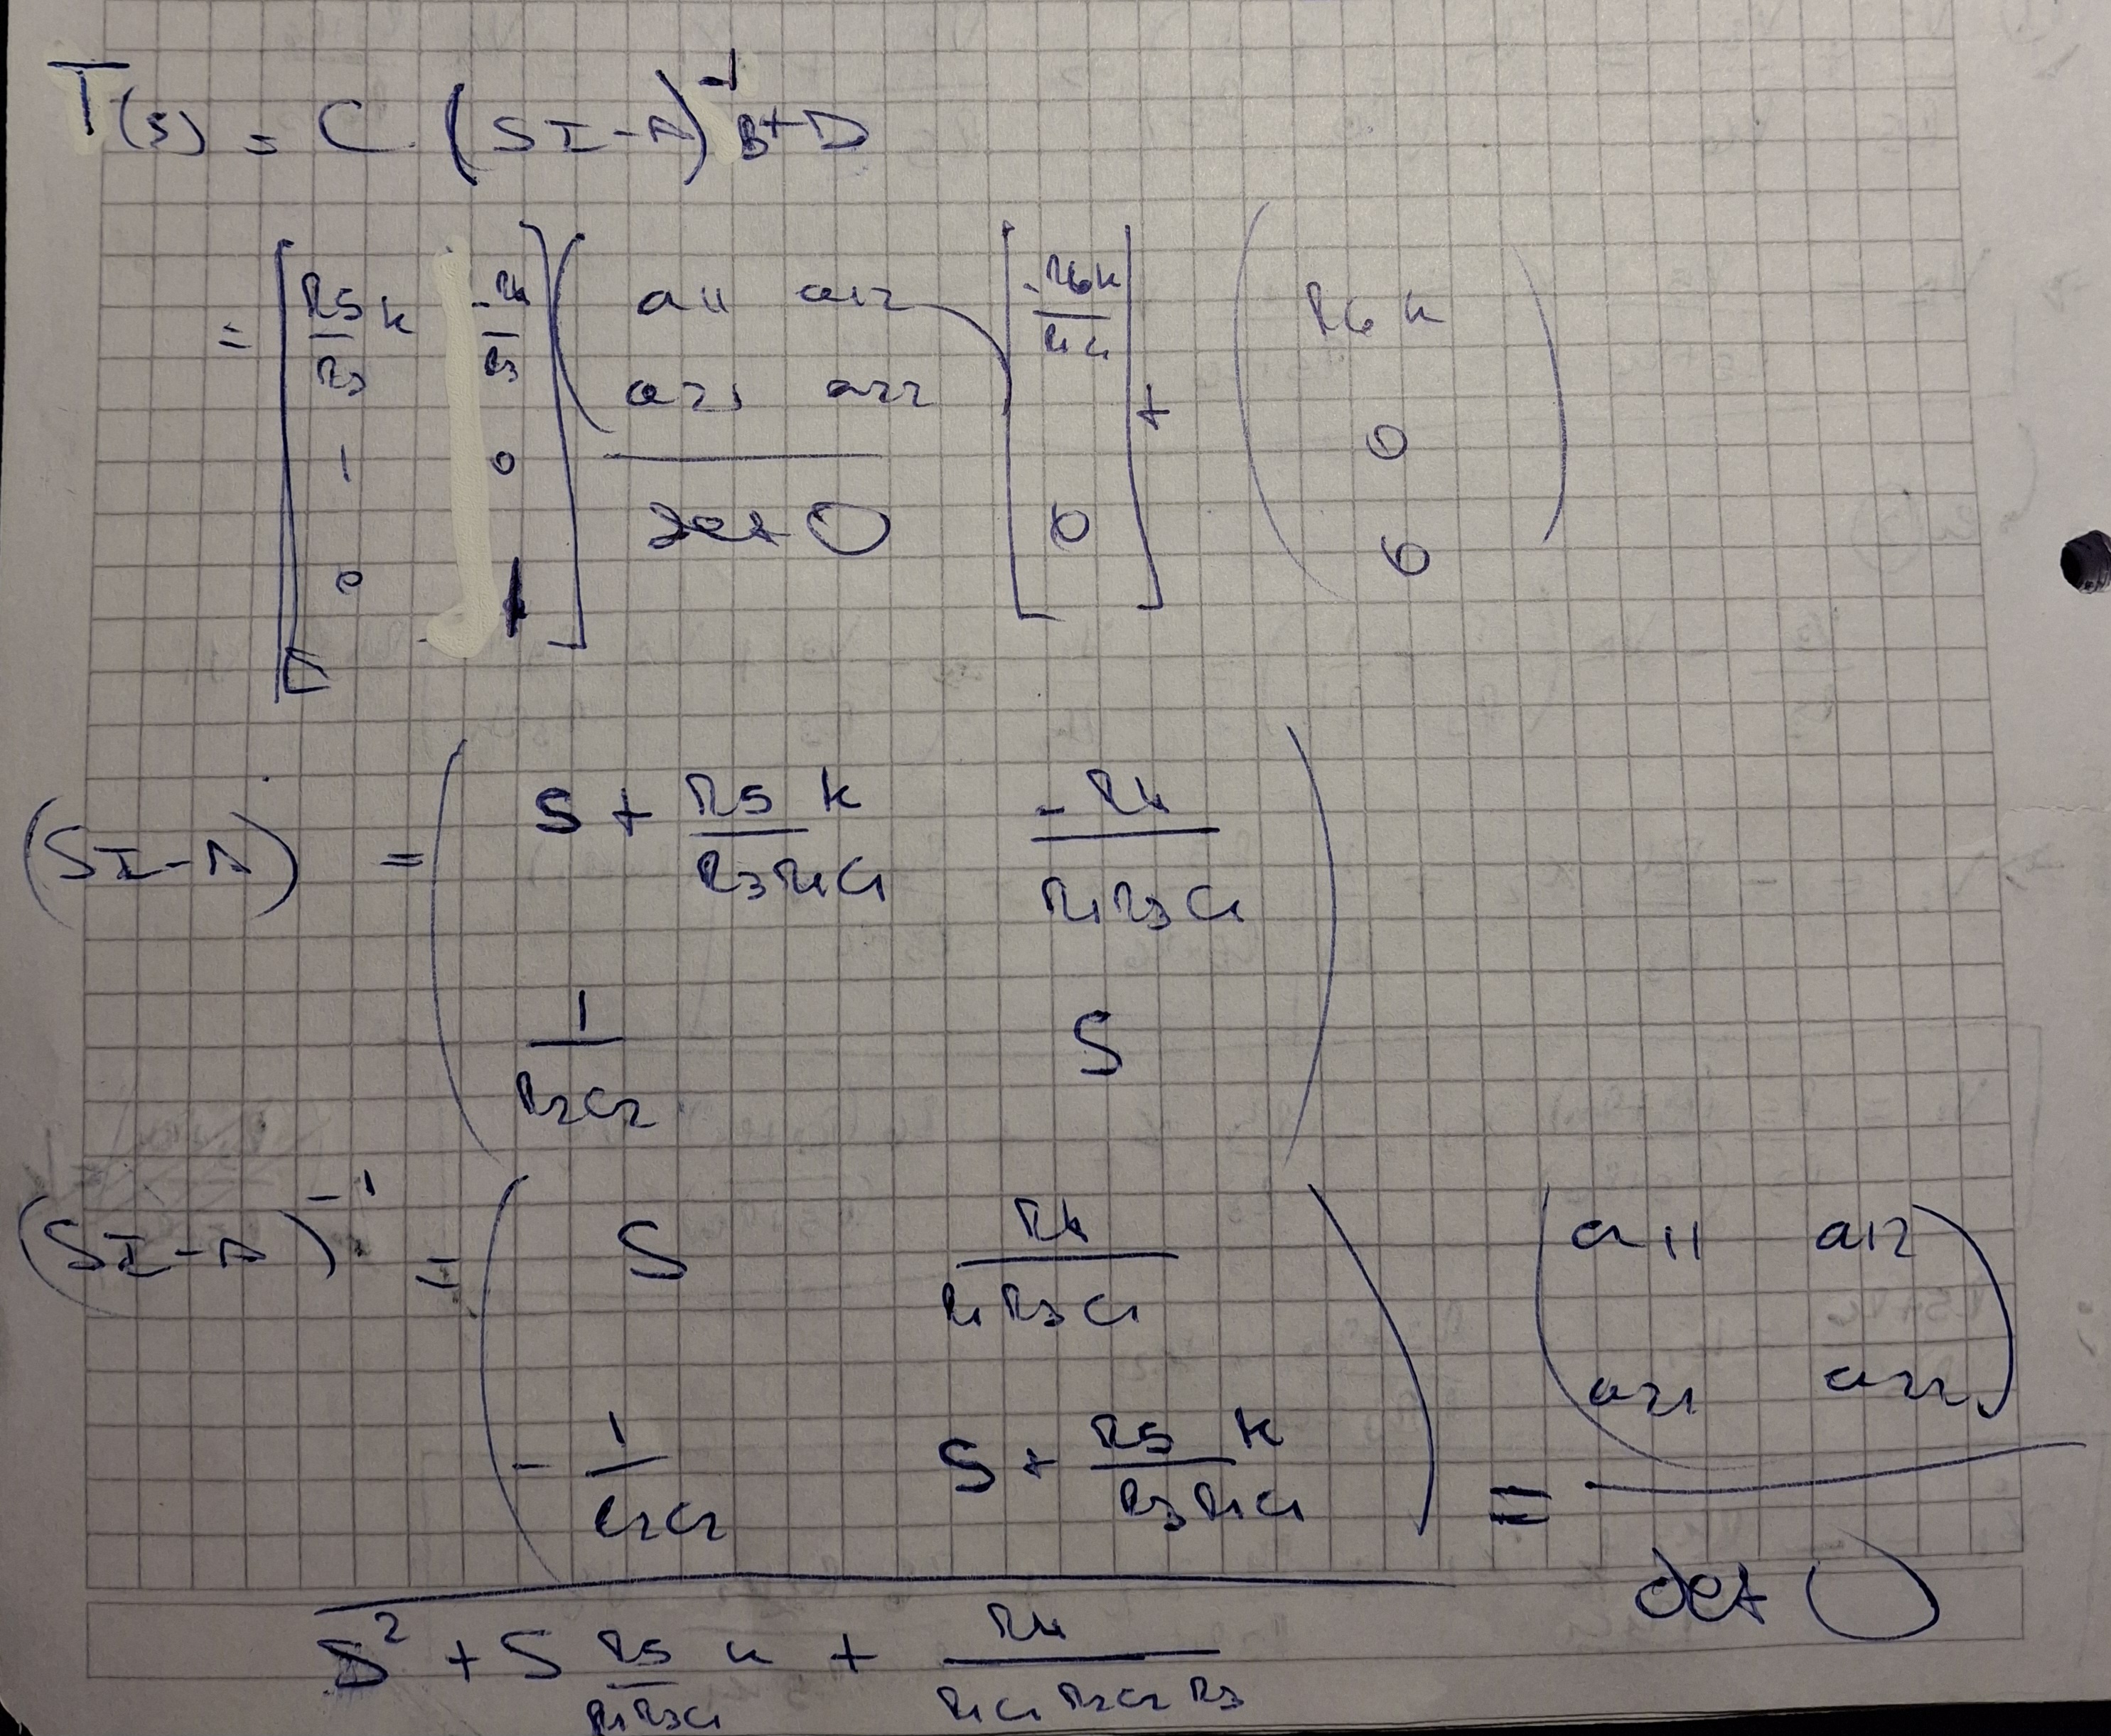 T(s) = C . (SI-A)^-1 B+D
= [ R5/R3 k  -R4/R3 ; 1  0 ; 0  1 ] ( a11  a12 ; a21  a22 ) / det () [ -R6k/R1C1 ; 0 ] + ( R6 k ; 0 ; 0 )
(SI-A) = ( S + R5 k / R3R1C1    -R4 / R1R3C1 ; 1 / R2C2    S )
(SI-A)^-1 = ( S    R4 / R1R3C1 ; - 1 / R2C2    S + R5 k / R3R1C1 ) / ( S^2 + S R5/R1R3C1 k + R4 / R1C1R2C2R3 ) = ( a11  a12 ; a21  a22 ) / det ()